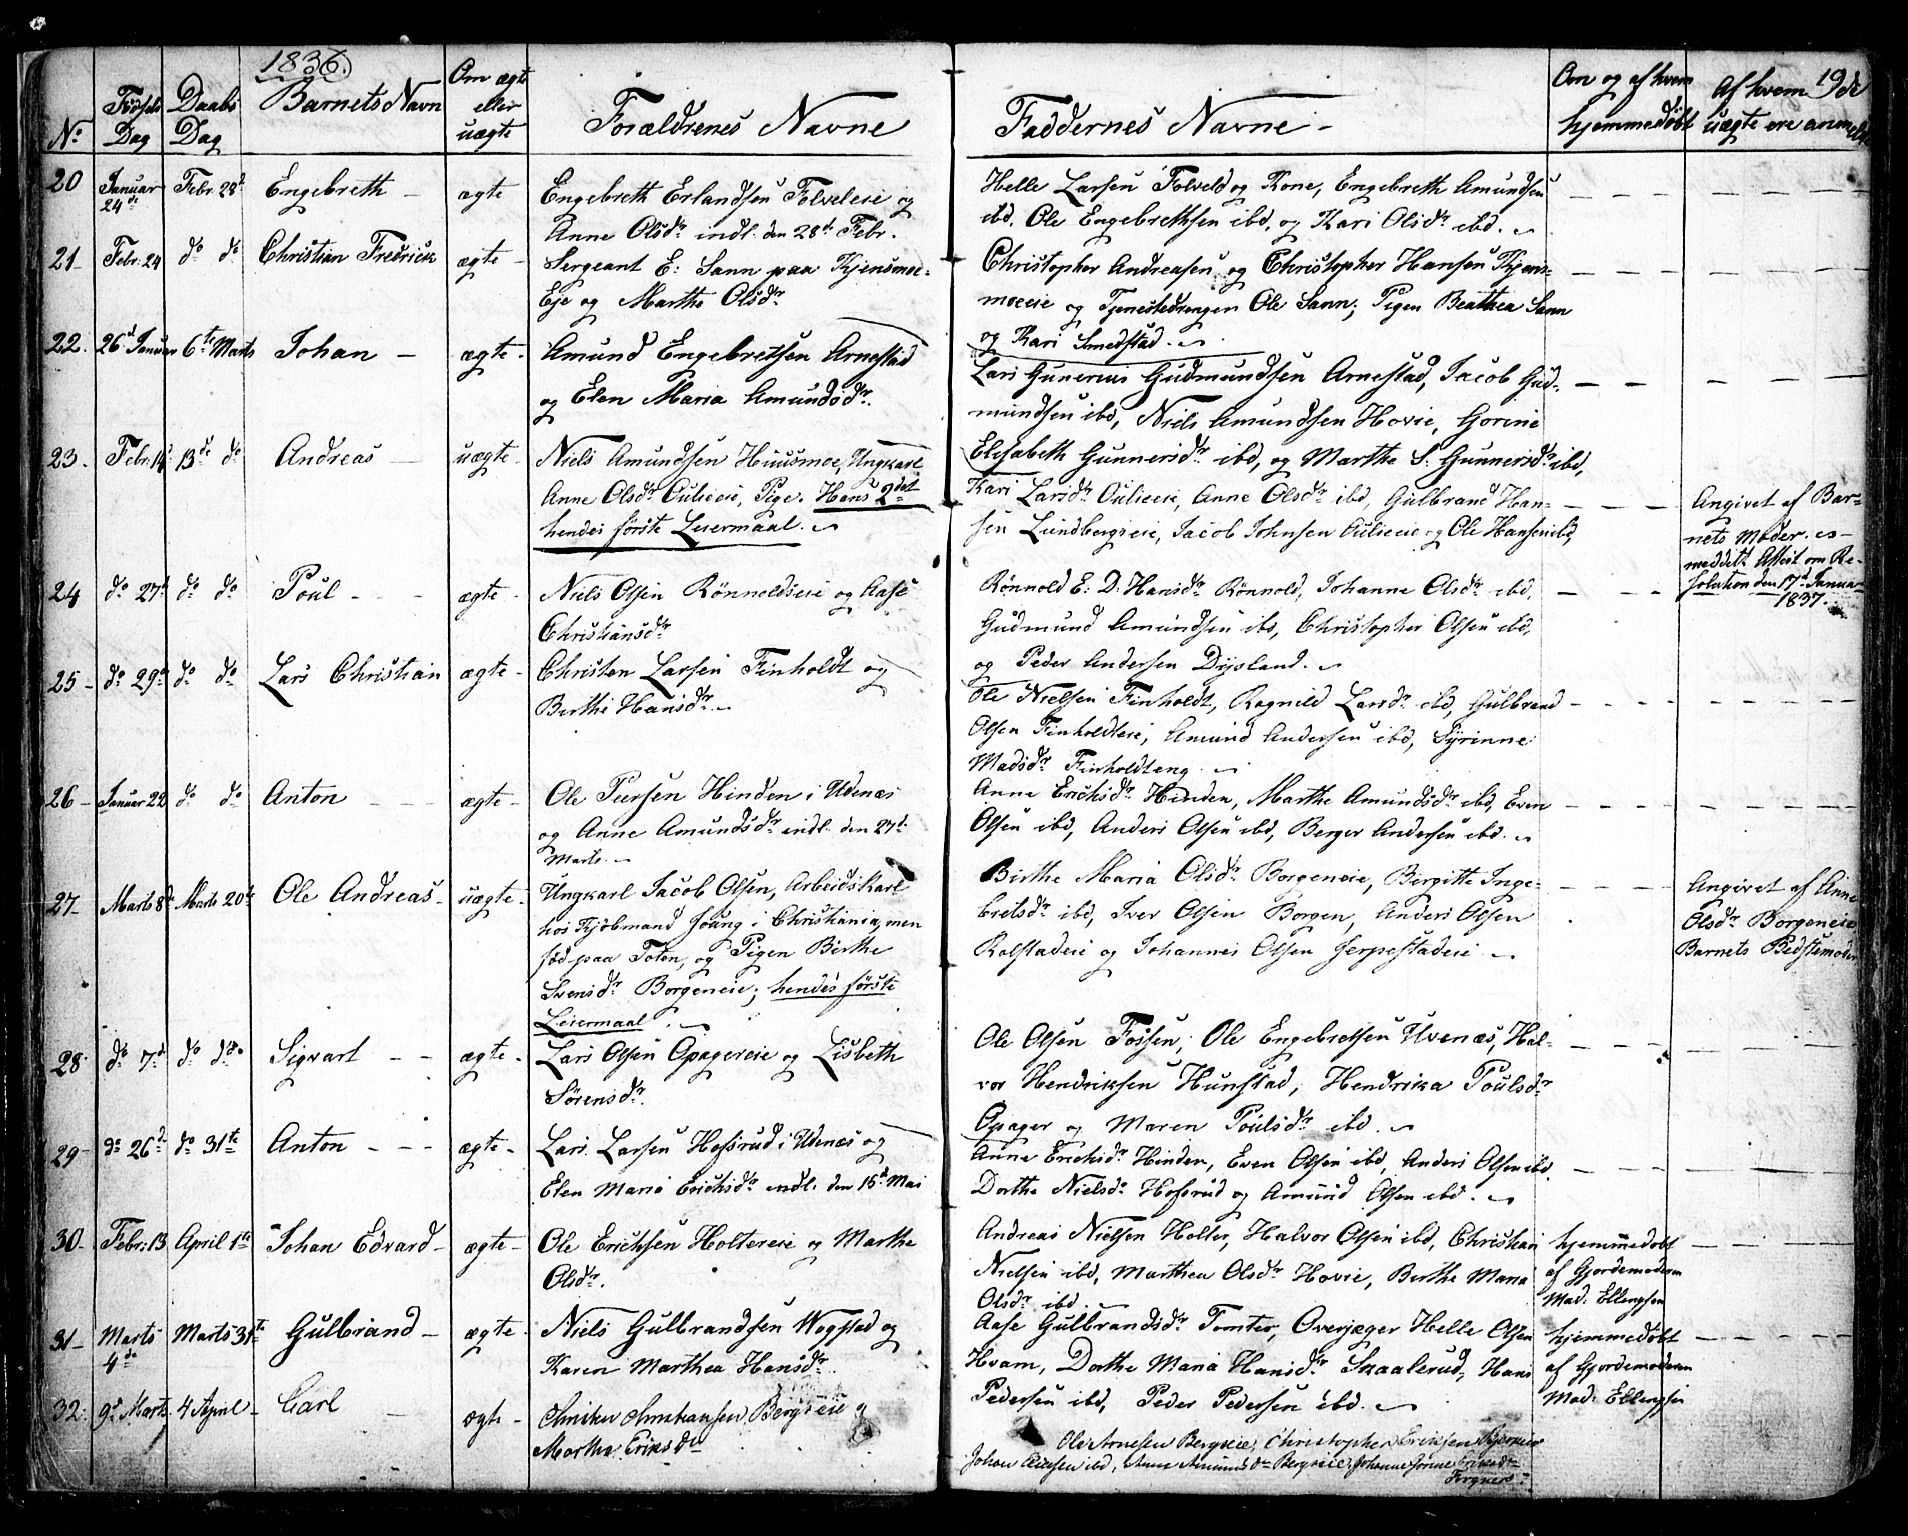 1836.
19de
No
Fødsels Dag
Daabs Dag
Barnets Navn
Om ægte eller uægte
Forældrenes Navne
Faddernes Navne
Om og af hvem hjemmedøbt
Af hvem uægte ere
20 Januar 24de Febr. 28d Engebreth ægte
Engebreth Erlandsen Tolveleie og
Anne Olsdr indl. den 28d Febr.
Helle Larsen Tolveld og Kone, Engebreth Amundsen
ibd. Ole Engebrethsen ibd, og Kari Olsdr ibd.
21 Febr. 24 do do Christian Fredrick ægte
Sergeant E: Sann paa Kjensmoe-
Eje og Marthe Olsdr
Christopher Andreasen og Christopher Hansen Kjens-
moeeie og Tjenestedrengen Ole Sann; Pigen Beathea Sann
og Kari Smedstad.
22. 26d Januar 6te Marts Johan ægte
Amund Engebretsen Arnestad
og Elen Maria Amundsdr.
Lars Gunerius Gudmundsen Arnestad, Jacob Gud-
mundsen ibd, Niels Amundsen Hovie, Gorine
Elisabeth Gunnersdr ibd, og Marthe S: Gunnersdr ibd,
23. Febr. 14d 13de do Andreas uægte
Niels Amundsen Huusmoe, Ungkarl
Anne Olsdr Oulieeie, Pige. Hans 2det
hendes første Leiermaal.
Kari Larsdr Oulieeie, Anne Olsdr ibd, Gulbrand Han-
sen Lundbergseie, Jacob Johnsen Oulieeie og Ole Hansen ibd,
Angivet af Bar-
nets Moder.
meddelt Attest om Re-
solution den 17d Januar
1837.
24 do 27d do do Poul ægte
Niels Olsen Rönnoldseie og Aase
Christiansdr
Rönnold E: D: Hansdr Rönnold, Johanne Olsdr ibd,
Gudmund Amundsen ibd, Christopher Olsen ibd,
og Peder Andersen Dysland.
25 do 29de do do Lars Christian ægte
Christen Larsen Finholdt og
Birthe Hansdr
Ole Nielsen Finholdt, Ragnild Larsdr ibd, Gulbrand
Olsen Finholdteie, Amund Andersen ibd, Syrinne
Madsdr Finholdteng
26 Januar 22 do do Anton ægte
Ole Peersen Hinden i Udenæs
og Anne Amundsdr indl. den 27d
Marts.
Anne Erichsdr Hinden, Marthe Amundsdr ibd, Even
Olsen ibd, Anders Olsen ibd, Berger Andersen ibd.
27 Marts 8d Marts 20de Ole Andreas uægte
Ungkarl Jacob Olsen, Arbeidskarl
hos Kjøbmand Joung i Christiania, men
fød paa Toten, og Pigen Birthe
Svensdr Borgeneie; hendes første
Leiermaal.
Birthe Maria Olsdr Borgeneie, Birgitte Inge-
bretsdr ibd, Iver Olsen Borgen, Anders Olsen
Rolstadeie og Johannes Olsen Jerpestadeie
Angivet af Anne
Olsdr Borgeneie
Barnets Bedstemoder
28 do 7d do do Sigvart ægte
Lars Olsen Opagereie og Lisbeth
Sørensdr.
Ole Olsen Fossen, Ole Engebretsen Uvenæs, Hal-
vor Hendriksen Hunstad, Hendrika Poulsdr
Opager og Maren Poulsdr ibd.
29 do 26d do 31te Anton ægte
Lars Larsen Hofsrud i Udenæs og
Elen Maria Erichsdr indl. den 15d Mai
Anne Erichsdr Hinden, Even Olsen ibd, Anders Olsen ibd.
Dorthe Nielsdr Hofsrud og Amund Olsen ibd.
30 Febr. 13 April 1te Johan Edvard ægte
Ole Erichsen Holtereie og Marthe
Olsdr.
Andreas Nielsen Holter, Halvor Olsen ibd, Christian
Nielsen ibd, Marthea Olsdr Hovie, Berthe Maria
Olsdr ibd.
hjemmedøbt
af Gjordemoderen
Mad: Ellengsen
31 Marts 4de Marts 31te Gulbrand ægte
Niels Gulbrandsen Wogstad og
Karen Marthea Hansdr
Aase Gulbrandsdr Tomter, Overjæger Helle Olsen
Hvam, Dorthe Maria Hansdr Skaalerud, Hans
Pedersen ibd, Peder Pedersen ibd.
hjemmedøbt
af Gjordemoderen
Mad: Ellengsen
32. 9d Marts 4 April Carl ægte
Bergseie
Marthe Eriksdr
Ole Arnesen Bergseie, Christopher Eriksen
Johan ibd, Anne Amundsdr Bergseie, Johanne